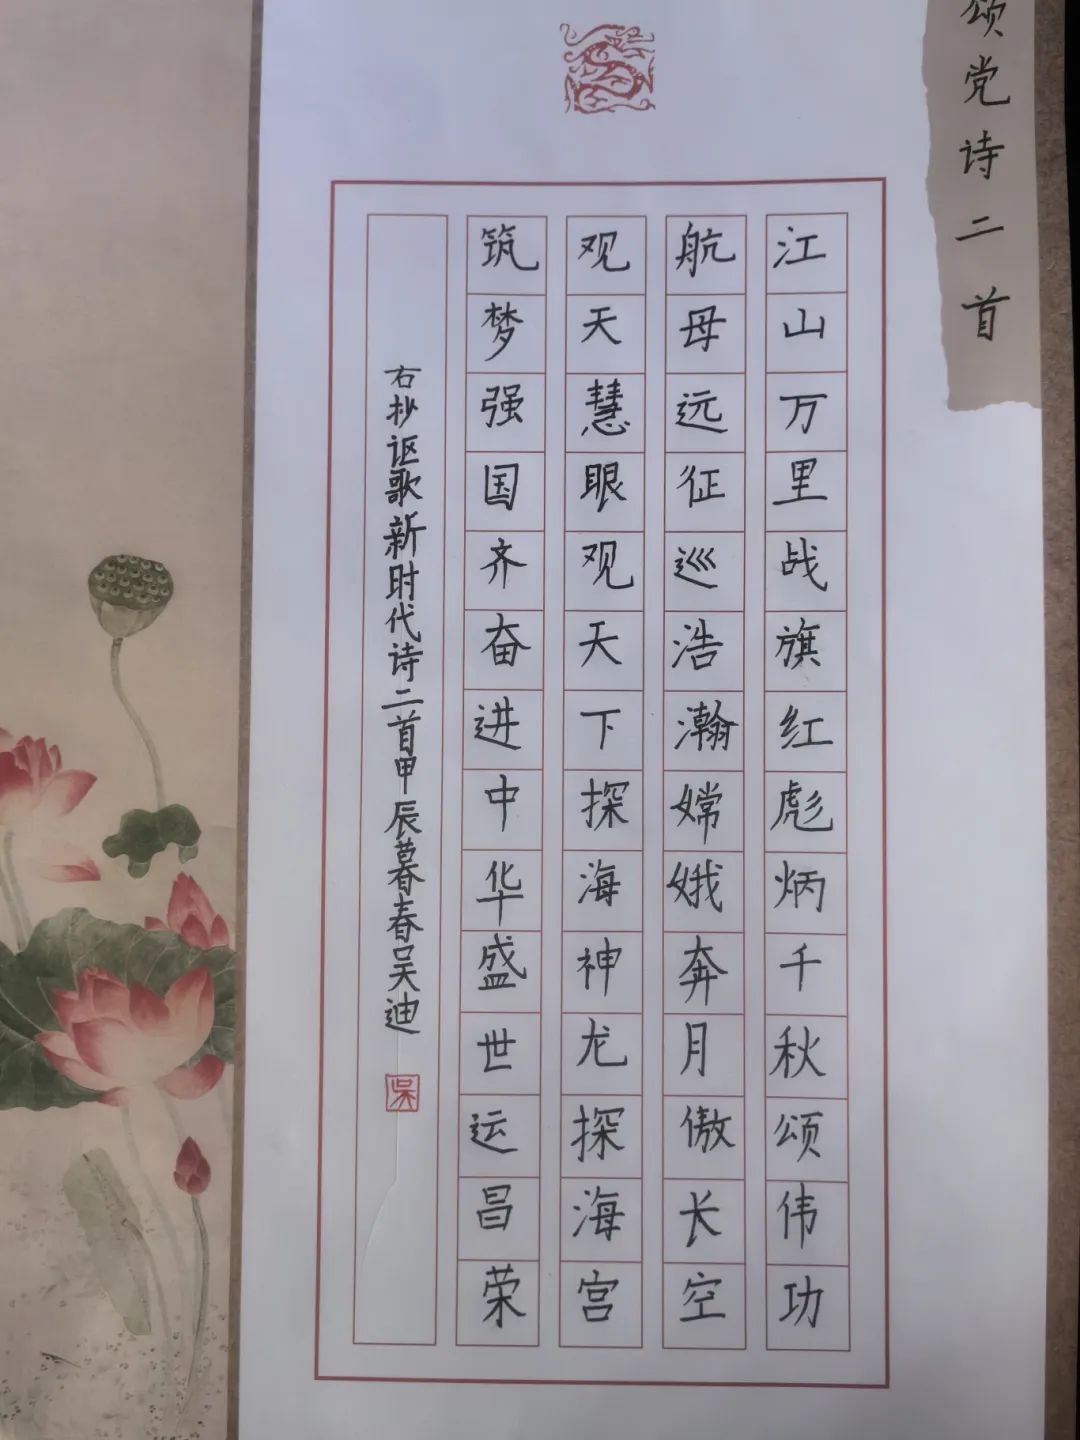 颂党诗二首
江山万里战旗红彪炳千秋颂伟功
航母远征巡浩瀚嫦娥奔月傲长空
观天慧眼观天下探海神龙探海宫
筑梦强国齐奋进中华盛世运昌荣
右抄讴歌新时代诗二首甲辰暮春吴迪
吴